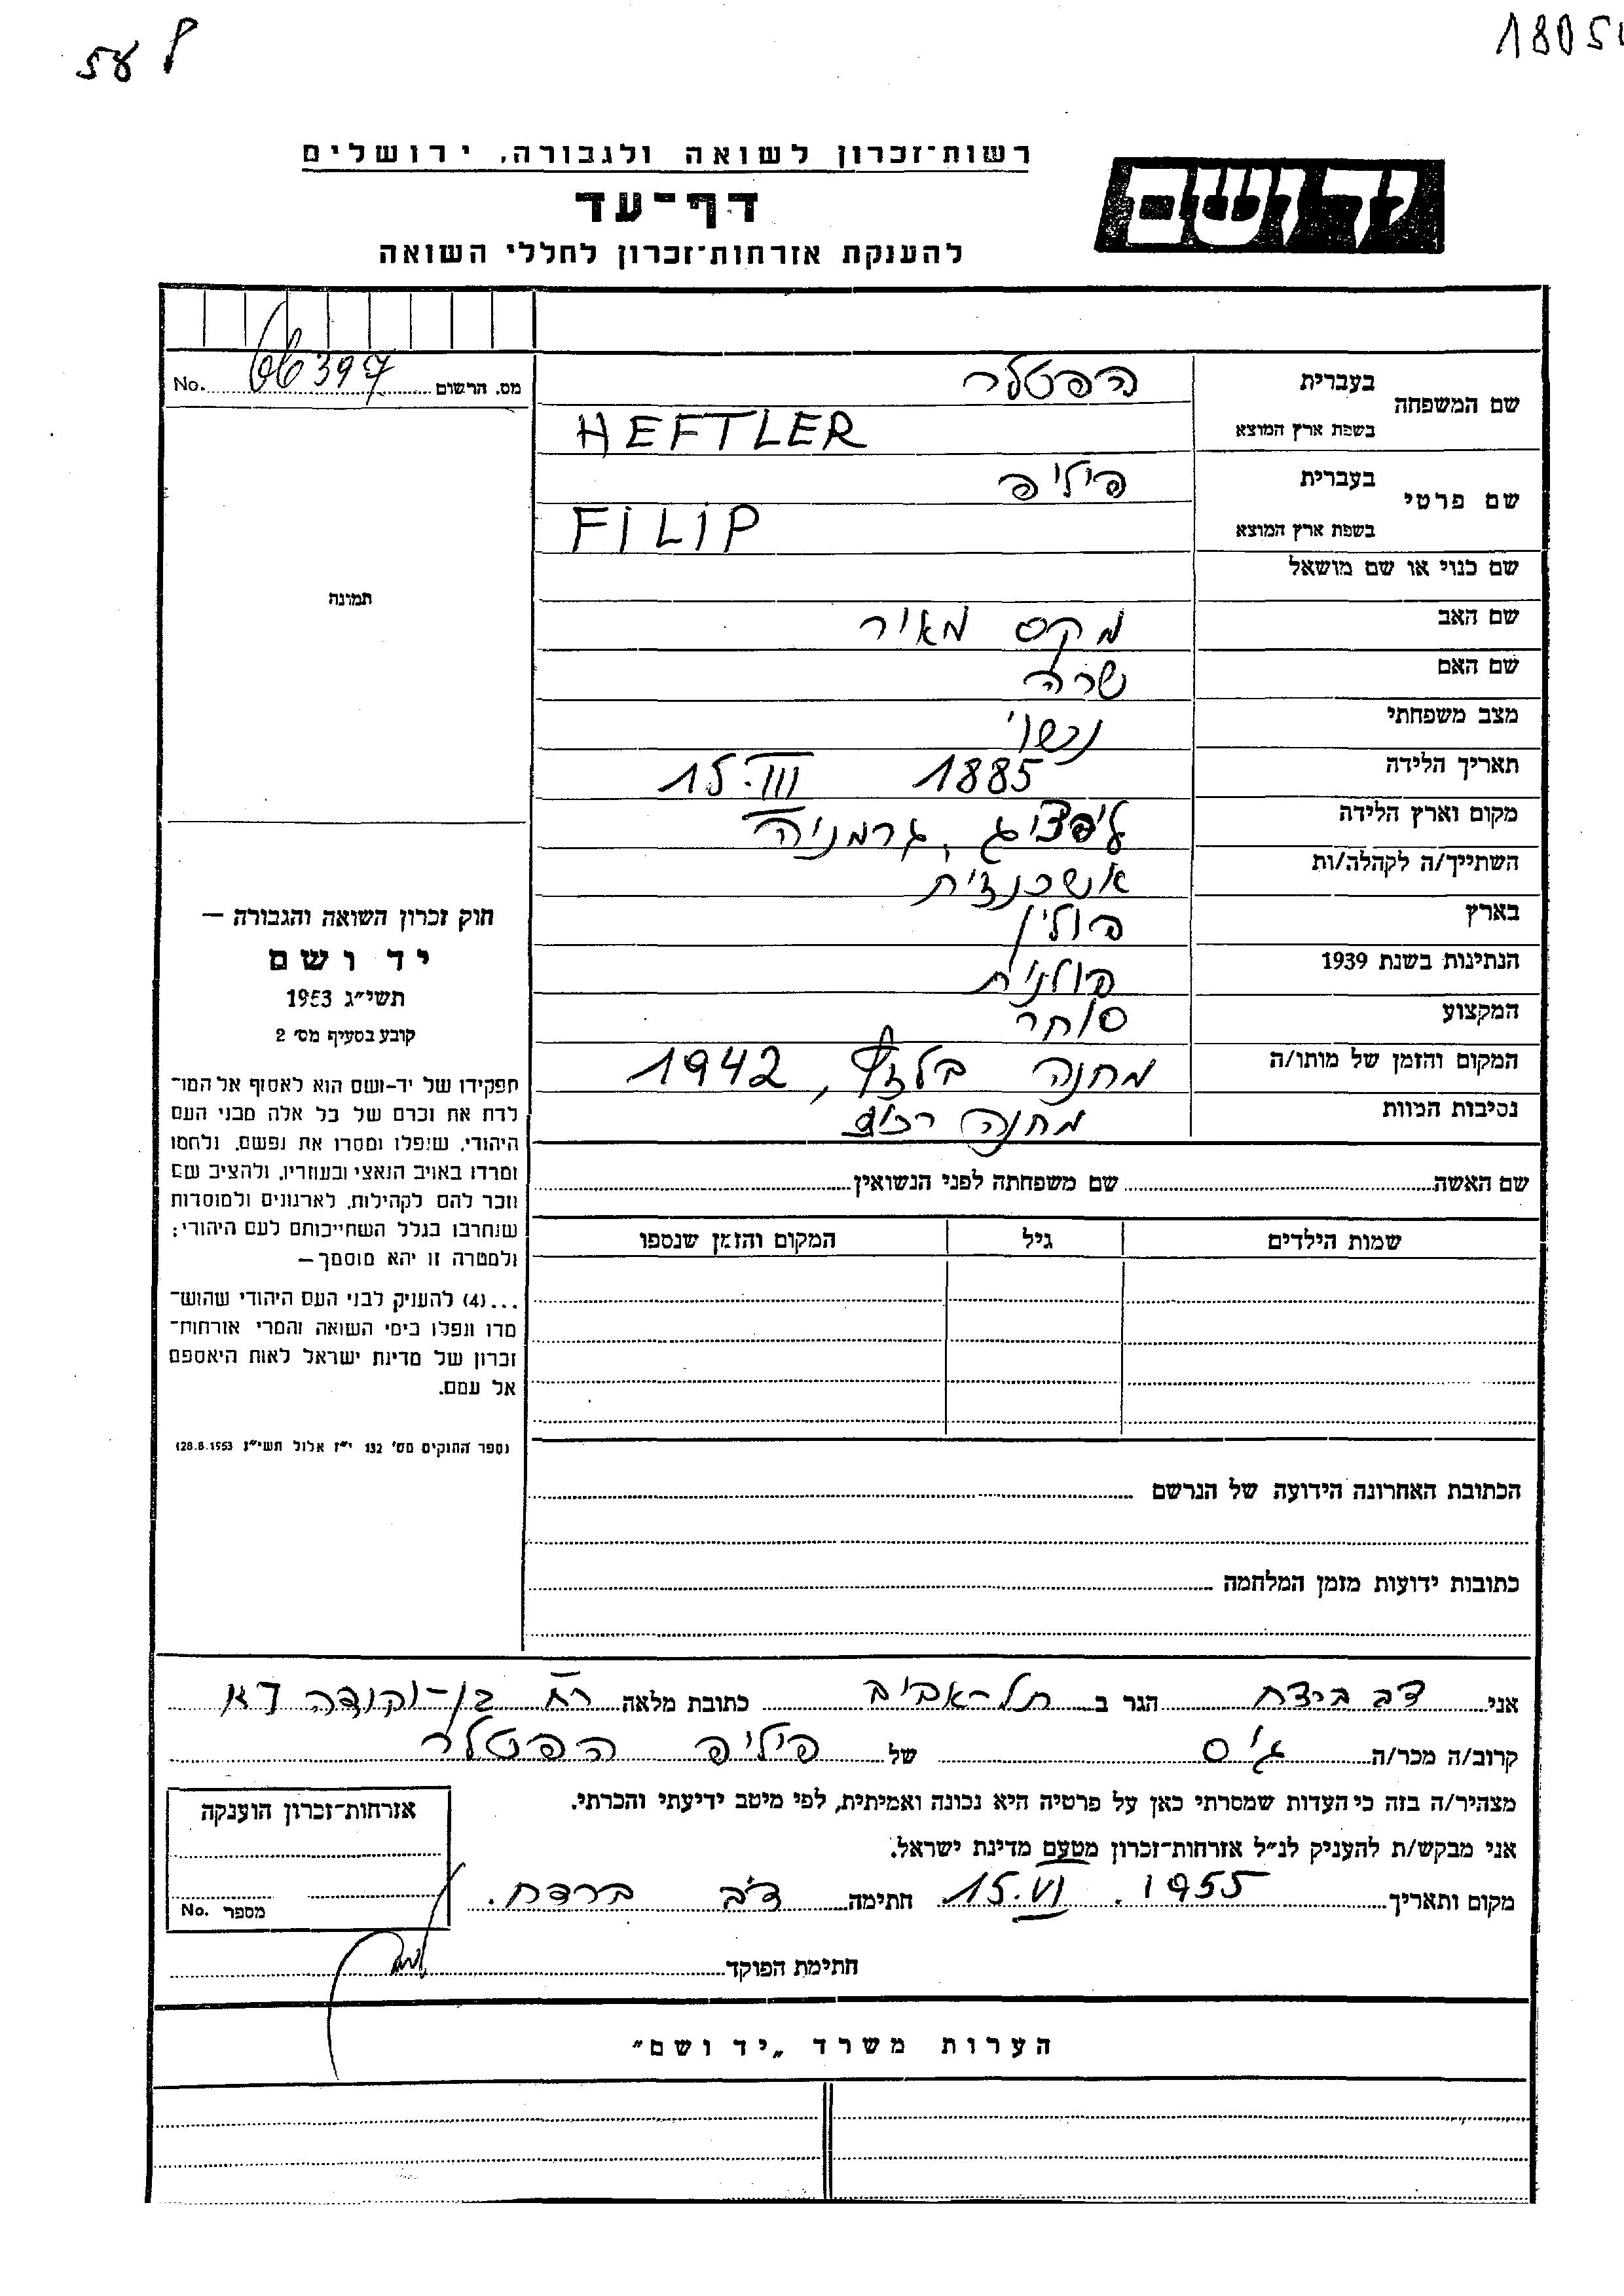 רשות־זכרון לשואה ולגבורה, ירושלים
יד ושם
דף־עד
להענקת אזרחות־זכרון לחללי השואה
No. 66397 מס. הרשום
שם המשפחה
בעברית הפטלר
בשפת ארץ המוצא HEFTLER
שם פרטי
בעברית פיליפ
בשפת ארץ המוצא FILIP
שם כנוי או שם מושאל
שם האב מקס מאיר
שם האם שרה
מצב משפחתי נשוי
תאריך הלידה 1885 15.III
מקום וארץ הלידה לייפציג, גרמניה
השתייך/ה לקהלה/ות אשכנזית
בארץ פולין
הנתינות בשנת 1939 פולנית
המקצוע סוחר
המקום והזמן של מותו/ה מחנה בלזץ, 1942
נסיבות המוות מחנה רכוז
תמונה
חוק זכרון השואה והגבורה —
יד ושם
תשי״ג 1953
קובע בסעיף מס׳ 2
תפקידו של יד-ושם הוא לאסוף אל המו־
לדת את זכרם של כל אלה מבני העם
היהודי, שנפלו ומסרו את נפשם, נלחמו
ומרדו באויב הנאצי ובעוזריו, ולהציב שם
וזכר להם לקהילות, לארגונים ולמוסדות
שנחרבו בגלל השתייכותם לעם היהודי;
ולמטרה זו יהא מוסמך—
...(4) להעניק לבני העם היהודי שהוש־
מדו ונפלו בימי השואה והמרי אזרחות־
זכרון של מדינת ישראל לאות היאספם
אל עמם.
(ספר החוקים מס׳ 132 י״ז אלול תשי״ג 28.8.1953)
שם האשה שם משפחתה לפני הנשואין
שמות הילדים גיל המקום והזמן שנספו
הכתובת האחרונה הידועה של הנרשם
כתובות ידועות מזמן המלחמה
אני דב הגר ב תל-אביב כתובת מלאה רח בן-יהודה
קרוב/ה מכר/ה גיס של פיליפ הפטלר
מצהיר/ה בזה כי העדות שמסרתי כאן על פרטיה היא נכונה ואמיתית, לפי מיטב ידיעתי והכרתי.
אני מבקש/ת להעניק לנ״ל אזרחות־זכרון מטעם מדינת ישראל.
מקום ותאריך 15.VI. 1955 חתימה דב
אזרחות־זכרון הוענקה
מספר No.
חתימת הפוקד
הערות משרד „יד ושם״